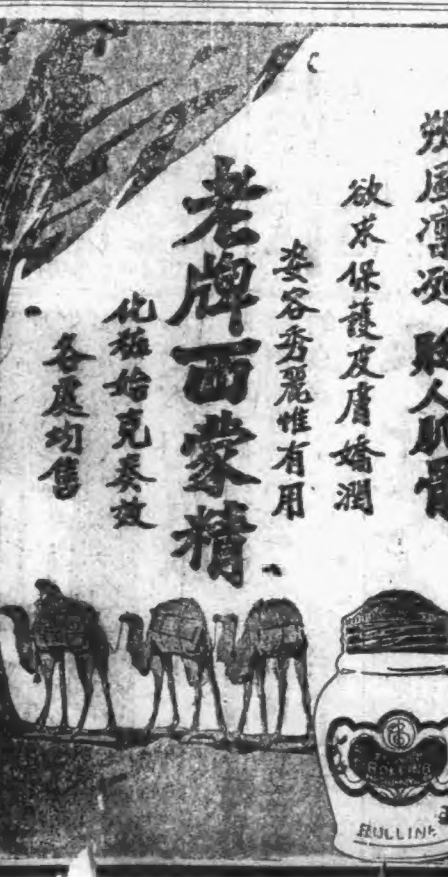 朔風凜冽 賒人肌骨
欲求保護皮膚嬌潤
姿容秀麗惟有用
老牌西蒙精
化粧始克奏效
各處均售
BULLINE